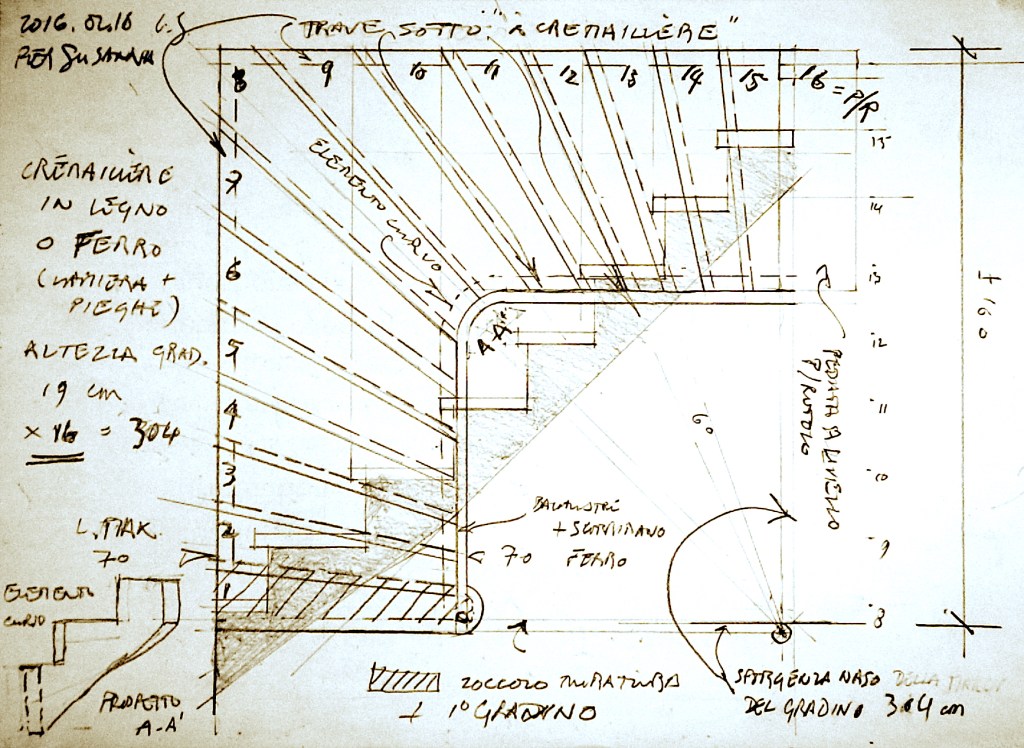 2016.02.10 L.S
PER SUSANNA
TRAVE SOTTO "A CREMAILLÈRE"
8 9 10 11 12 13 14 15 16 = P/R
CRÉMAILLÈRE
IN LEGNO
O FERRO
(LAMIERA +
PIEGHE)
ALTEZZA GRAD.
19 cm
× 16 = 304
ELEMENTO CURVO
7
6
5
4
3
2
1
A-A'
15
14
13
12
11
10
9
8
± 160
PEDATA A LIVELLO
P/RUTOLO
6°
L. MAX.
70
BALAUSTRE
+ SCORRIMANO
FERRO
70
ELEMENTO
CURVO
PROSPETTO
A-A'
ZOCCOLO MURATURA
+ 1° GRADINO
SPORGENZA NASO DELLA
DEL GRADINO 3.4 cm